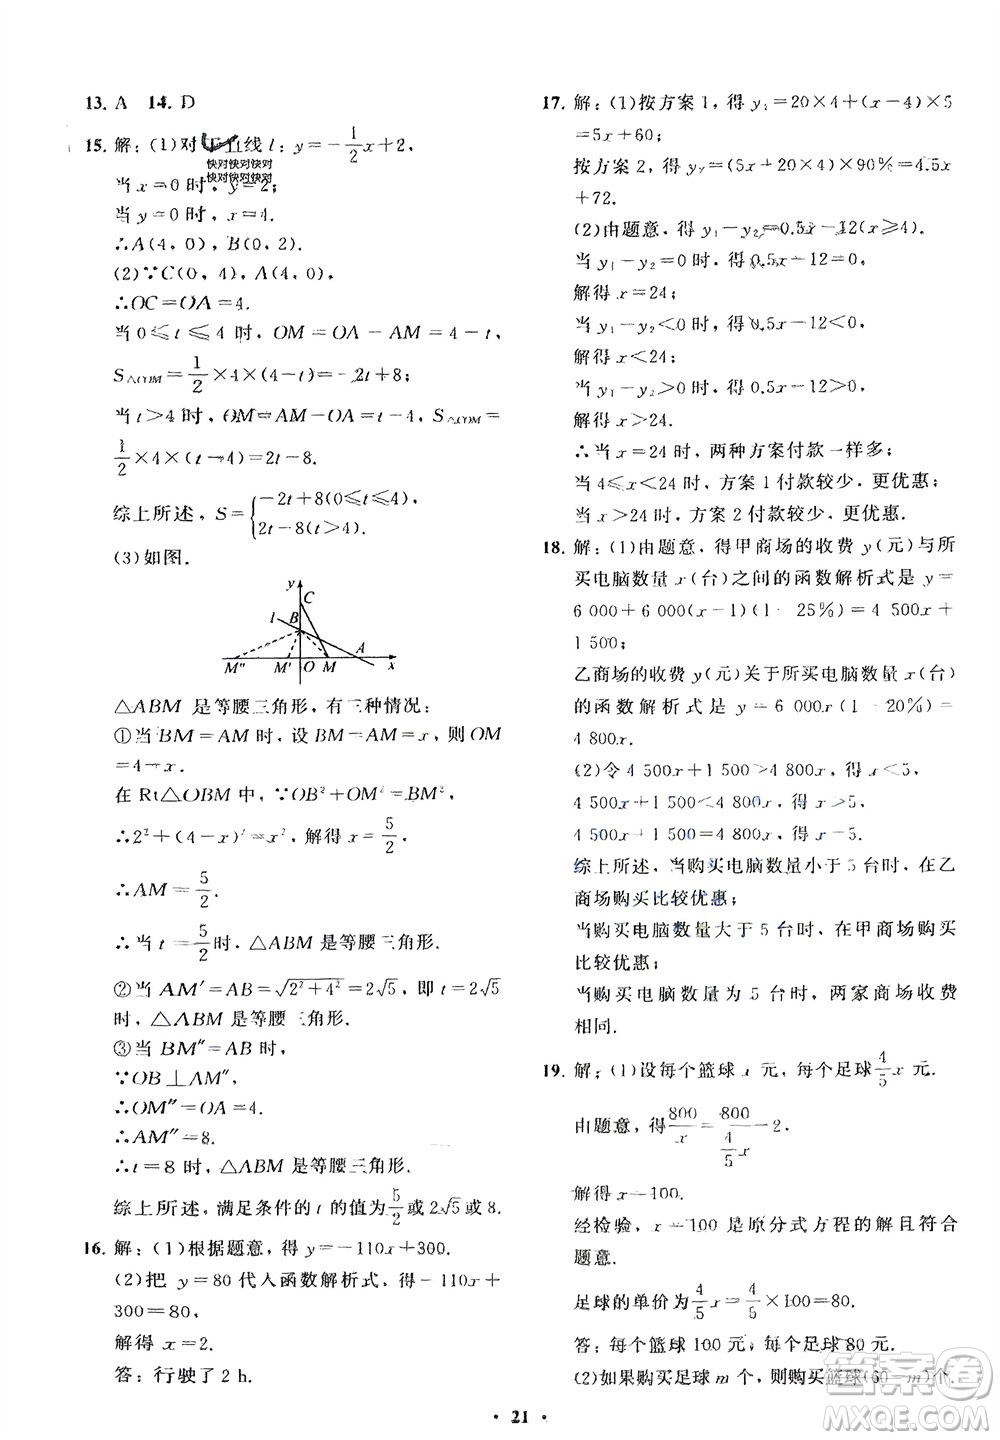 13. A  14. D
15. 解：(1)对于直线 l：y=-1/2x+2，
快对快对快对
快对快对快对
当 x=0 时，y=2；
当 y=0 时，x=4.
∴A(4，0)，B(0，2).
(2)∵C(0，4)，A(4，0)，
∴OC=OA=4.
当 0≤t≤4 时，OM=OA-AM=4-t，
S△OBM=1/2×4×(4-t)=-2t+8；
当 t>4 时，OM=AM-OA=t-4，S△OM=
1/2×4×(t-4)=2t-8.
综上所述，S={-2t+8(0≤t≤4)，
2t-8(t>4).
(3)如图.
y
C
l B
A
M″ M′ O M x
△ABM 是等腰三角形，有三种情况：
①当 BM=AM 时，设 BM=AM=x，则 OM
=4-x.
在 Rt△OBM 中，∵OB²+OM²=BM²，
∴2²+(4-x)²=x²，解得 x=5/2.
∴AM=5/2.
∴当 t=5/2时，△ABM 是等腰三角形.
②当 AM′=AB=√(2²+4²)=2√5，即 t=2√5
时，△ABM 是等腰三角形.
③当 BM″=AB 时，
∵OB⊥AM″，
∴OM″=OA=4.
∴AM″=8.
∴t=8 时，△ABM 是等腰三角形.
综上所述，满足条件的 t 的值为5/2或 2√5 或 8.
16. 解：(1)根据题意，得 y=-110x+300.
(2)把 y=80 代入函数解析式，得-110x+
300=80，
解得 x=2.
答：行驶了 2 h.
17. 解：(1)按方案 1，得 y₁=20×4+(x-4)×5
=5x+60；
按方案 2，得 y₂=(5x+20×4)×90%=4.5x
+72.
(2)由题意，得 y₁-y₂=0.5x-12(x≥4).
当 y₁-y₂=0 时，得 0.5x-12=0，
解得 x=24；
当 y₁-y₂<0 时，得 0.5x-12<0，
解得 x<24；
当 y₁-y₂>0 时，得 0.5x-12>0，
解得 x>24.
∴当 x=24 时，两种方案付款一样多；
当 4≤x<24 时，方案 1 付款较少，更优惠；
当 x>24 时，方案 2 付款较少，更优惠.
18. 解：(1)由题意，得甲商场的收费 y(元)与所
买电脑数量 x(台)之间的函数解析式是 y=
6 000+6 000(x-1)(1-25%)=4 500x+
1 500；
乙商场的收费 y(元)关于所买电脑数量 x(台)
的函数解析式是 y=6 000x(1-20%)=
4 800x.
(2)令 4 500x+1 500>4 800x，得 x<5，
4 500x+1 500<4 800x，得 x>5，
4 500x+1 500=4 800x，得 x=5.
综上所述，当购买电脑数量小于 5 台时，在乙
商场购买比较优惠；
当购买电脑数量大于 5 台时，在甲商场购买
比较优惠；
当购买电脑数量为 5 台时，两家商场收费
相同.
19. 解：(1)设每个篮球 x 元，每个足球4/5x 元.
由题意，得800/x=800/(4/5x)-2.
解得 x=100.
经检验，x=100 是原分式方程的解且符合
题意.
足球的单价为4/5x=4/5×100=80.
答：每个篮球 100 元，每个足球 80 元.
(2)如果购买足球 m 个，则购买篮球(60-m)个.
答案圈
MXQE.COM
· 21 ·